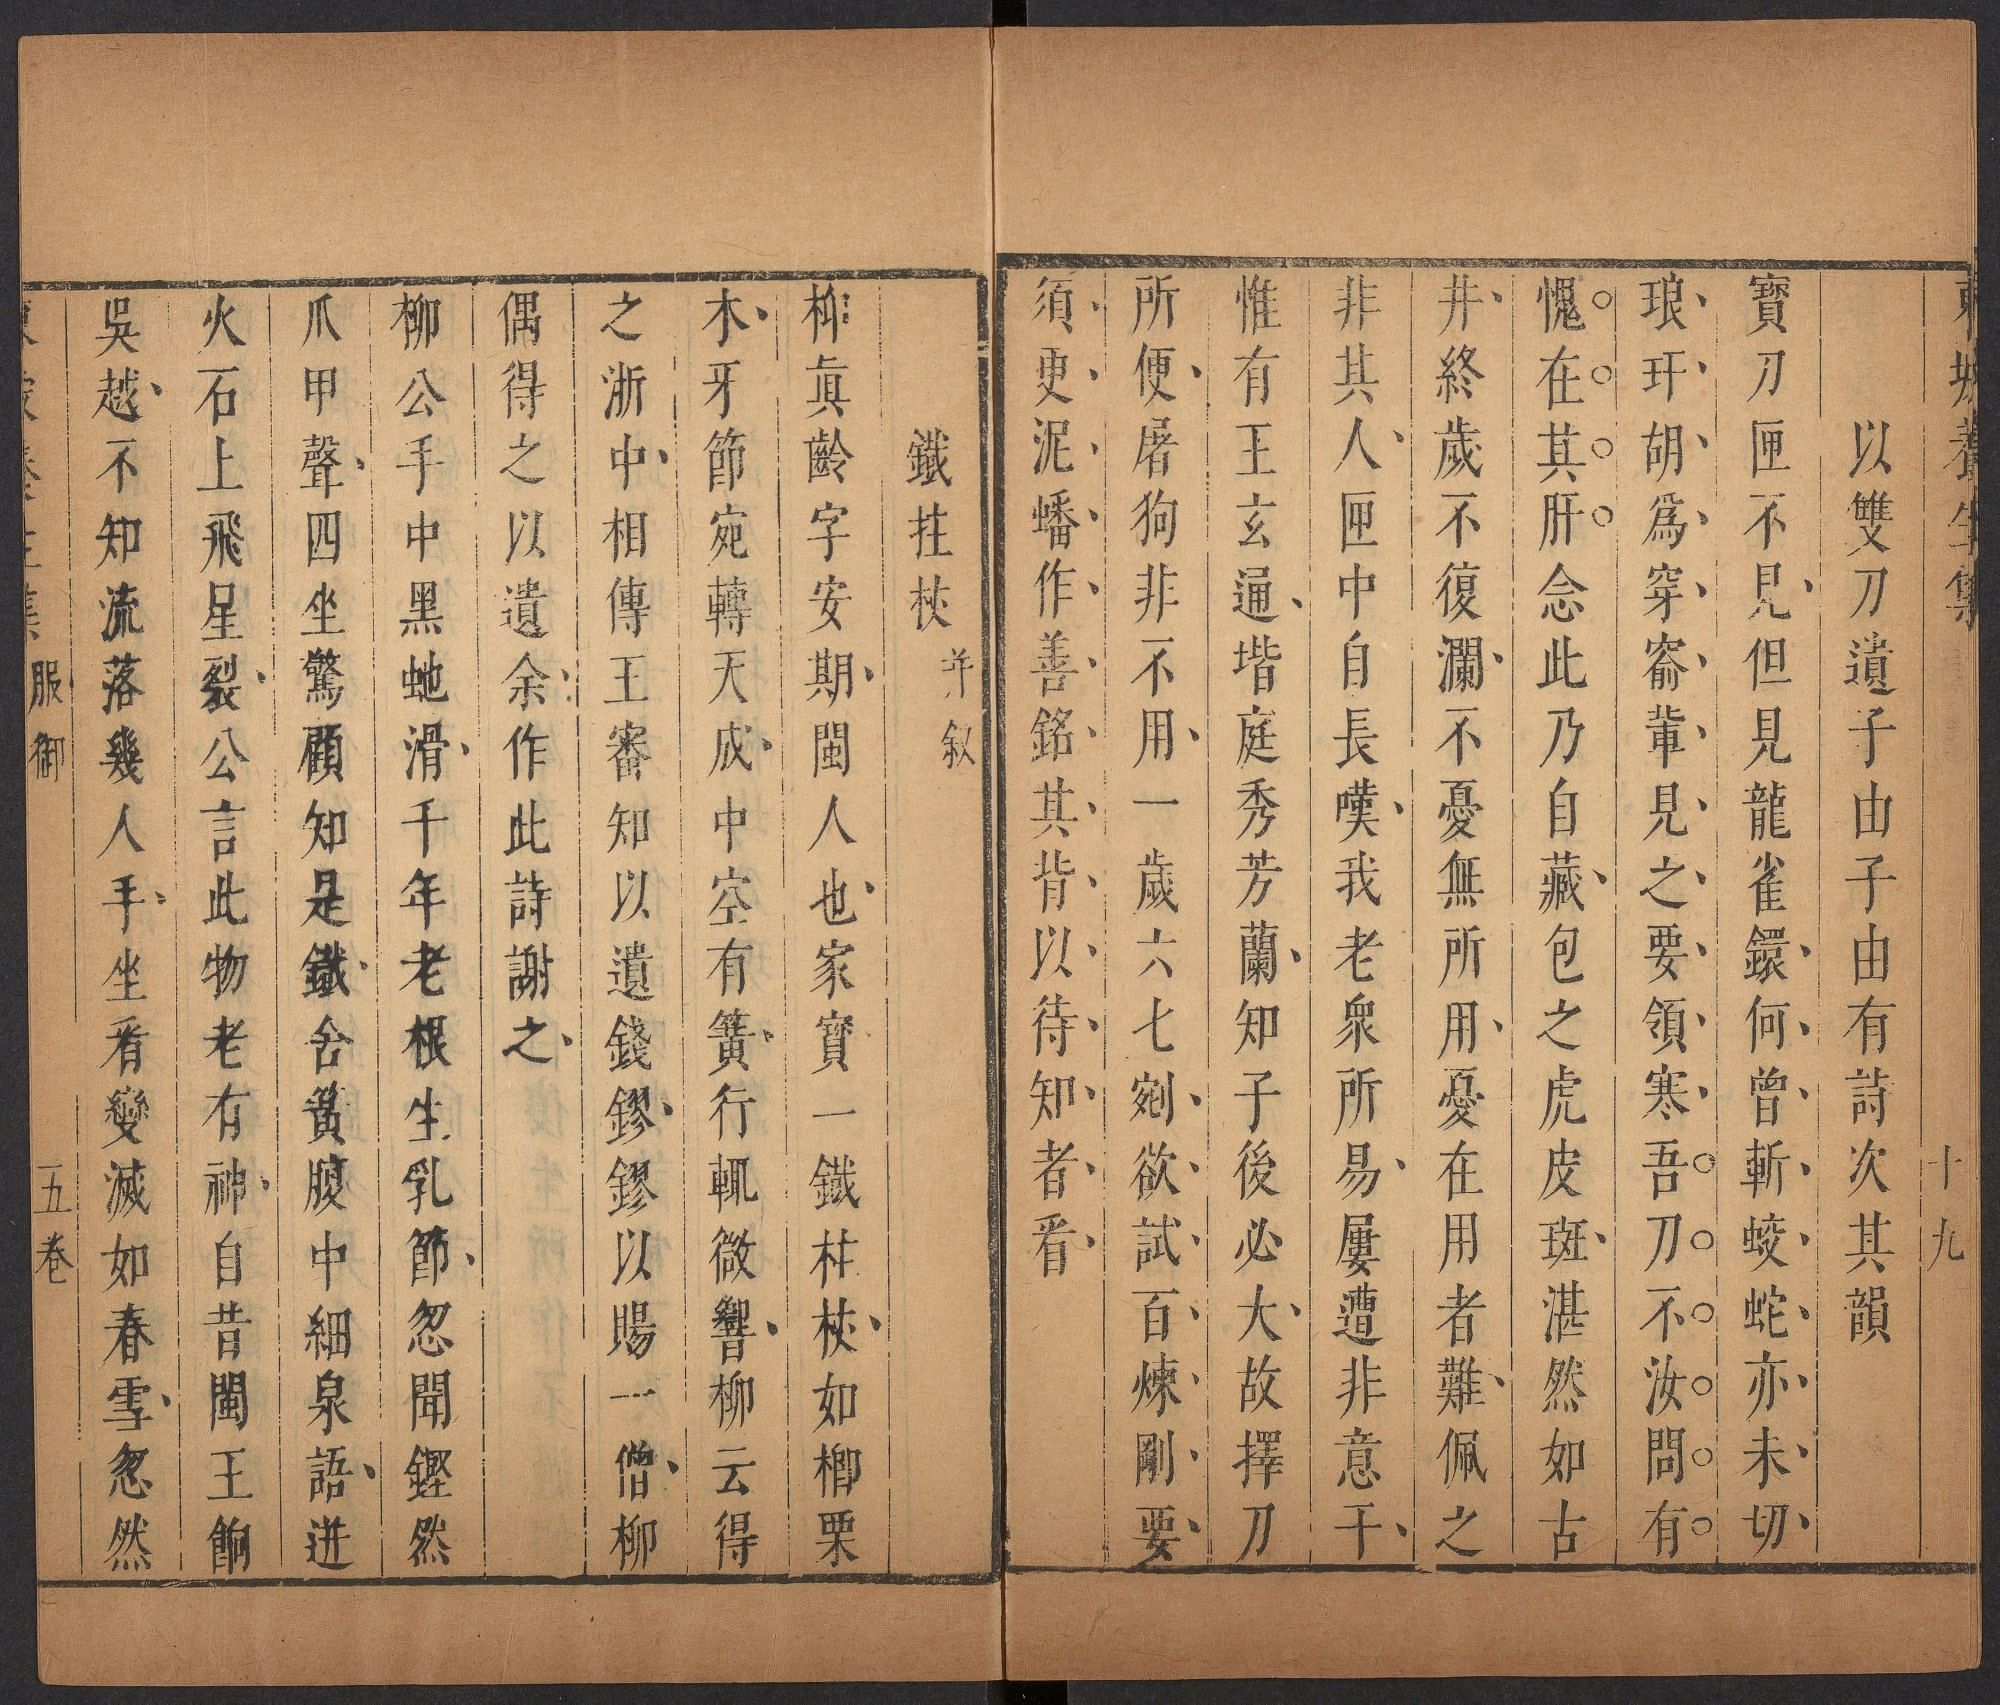 東坡養生集
十九
以雙刀遺子由子由有詩次其韻
寶刀匣不見但見龍雀鐶何曾斬蛟蛇亦未切
琅玕胡爲穿窬輩見之要領寒吾刀不汝問有
愧在其肝念此乃自藏包之虎皮斑湛然如古
井終歲不復瀾不憂無所用憂在用者難佩之
非其人匣中自長嘆我老衆所易屢遭非意干
惟有王玄通堦庭秀芳蘭知子後必大故擇刀
所便屠狗非不用一歲六七剜欲試百煉剛要
須更泥蟠作善銘其背以待知者看
鐵拄杖
并敘
柳眞齡字安期閩人也家寶一鐵柱杖如楖栗
木牙節宛轉天成中空有簧行輒微響柳云得
之浙中相傳王審知以遺錢鏐鏐以賜一僧柳
偶得之以遺余作此詩謝之
柳公手中黑虵滑千年老根生乳節忽聞鏗然
爪甲聲四坐驚顧知是鐵含簧腹中細泉語迸
火石上飛星裂公言此物老有神自昔閩王餉
吳越不知流落幾人手坐看變滅如春雪忽然
東坡養生集
服御
五卷